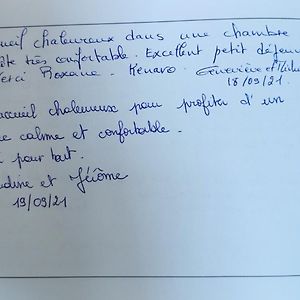 ueil chaleureux dans une chambre
ôte très confortable. Excellent petit déjeu
erci Roxane. Kenavo. Geneviève et
18/09/21.
accueil chaleureux pour profiter d'un
e calme et confortable.
i pour tout.
udine et Jérôme
19/09/21